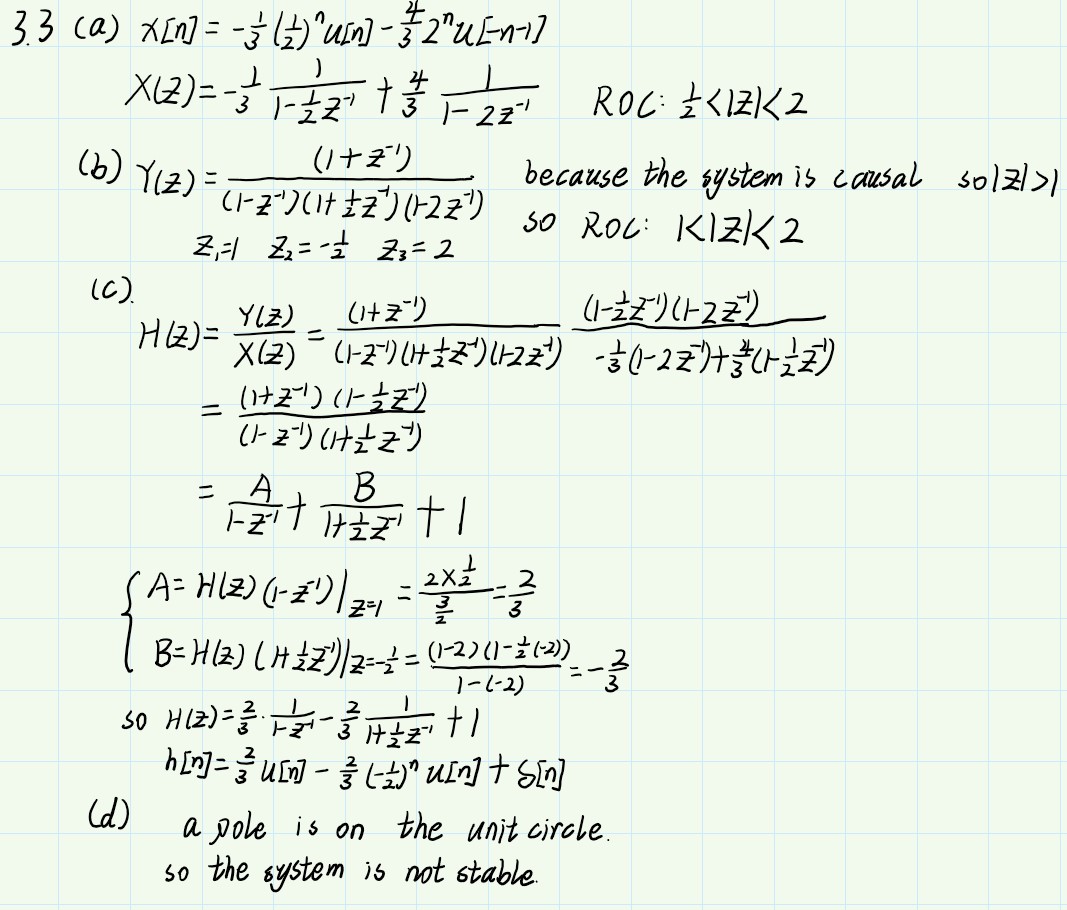 3.3 (a) x[n] = -1/3 (1/2)^n u[n] - 4/3 2^n u[-n-1]
X(z) = -1/3 1/(1-1/2 z^-1) + 4/3 1/(1-2z^-1) ROC: 1/2<|z|<2
(b) Y(z) = (1+z^-1)/((1-z^-1)(1+1/2 z^-1)(1-2z^-1)) because the system is causal so |z|>1
z₁=1 z₂=-1/2 z₃=2 so ROC: 1<|z|<2
(c).
H(z) = Y(z)/X(z) = (1+z^-1)/((1-z^-1)(1+1/2 z^-1)(1-2z^-1)) (1-1/2 z^-1)(1-2z^-1)/(-1/3(1-2z^-1)+4/3(1-1/2 z^-1))
= (1+z^-1)(1-1/2 z^-1)/((1-z^-1)(1+1/2 z^-1))
= A/(1-z^-1) + B/(1+1/2 z^-1) + 1
{ A = H(z)(1-z^-1)|z=1 = (2×1/2)/(3/2) = 2/3
B = H(z)(1+1/2 z^-1)|z=-1/2 = (1-2)(1-1/2(-2))/(1-(-2)) = -2/3
so H(z) = 2/3 · 1/(1-z^-1) - 2/3 1/(1+1/2 z^-1) + 1
h[n] = 2/3 u[n] - 2/3 (-1/2)^n u[n] + δ[n]
(d) a pole is on the unit circle.
so the system is not stable.